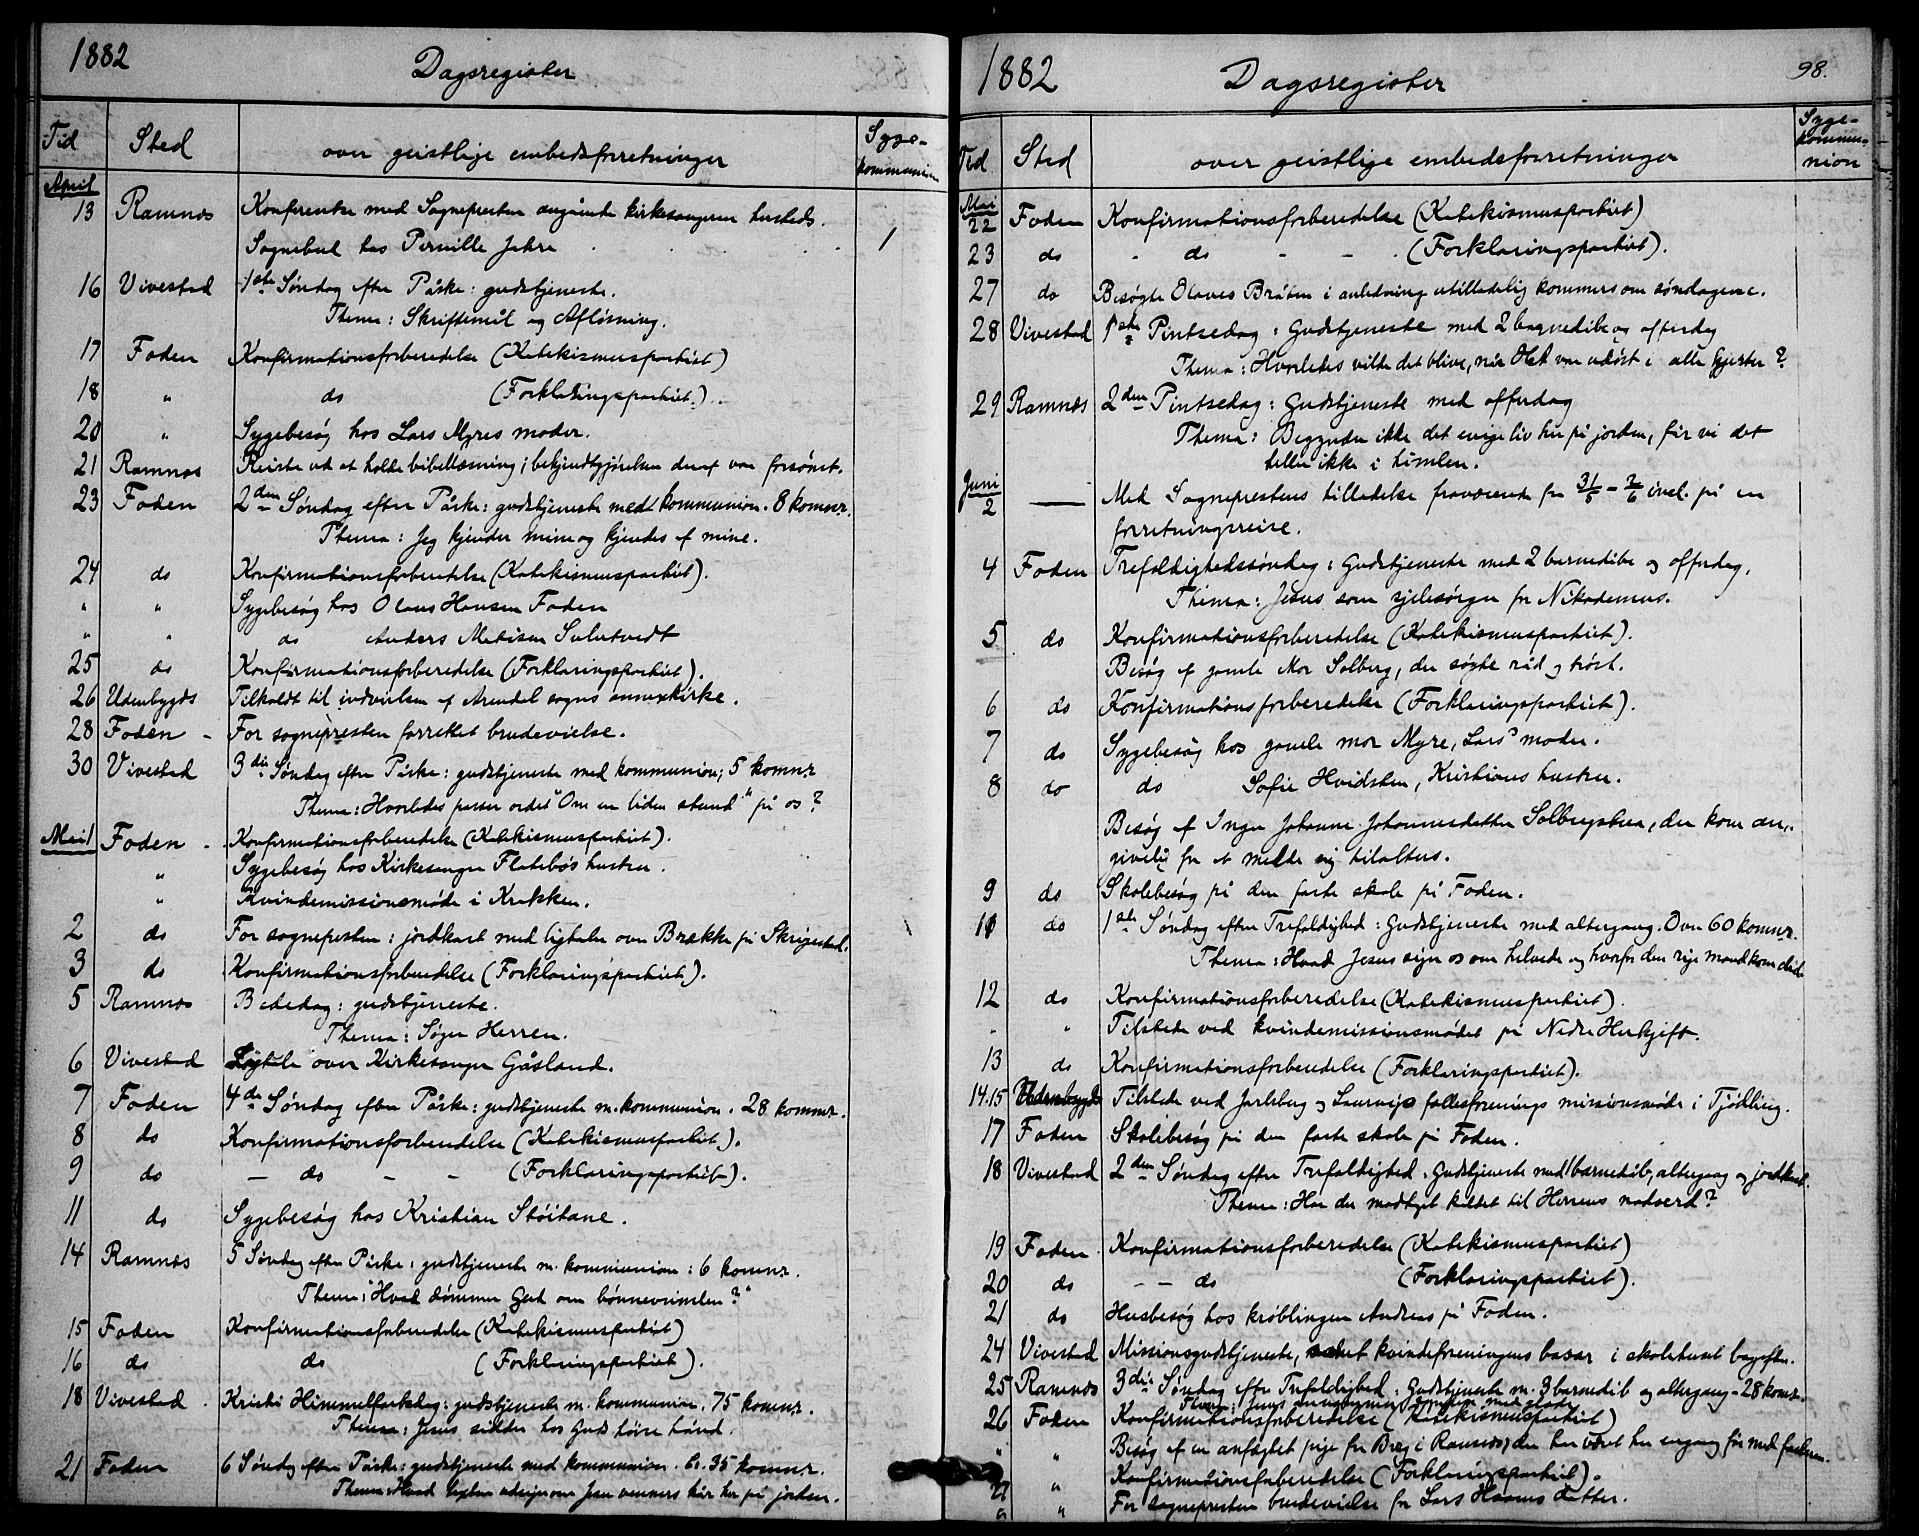 1882
Dagsregister
Tid Sted over geistlige embedsforretninger Syge-
kommunion
April
13 Ramnæs Konferentse med Sognepresten angående kirkesangeren husteds.
Sognebud hos Pernille Jahre 1
16 Vivestad 1ste Søndag efter Påske: gudstjeneste.
Thema: Skriftemål og Afløsning.
17 Foden Konfirmationsforberedelse (Katekismuspartiet)
18 " do (Forklaringspartiet).
20 " Sygebesøg hos Lars Myres moder.
21 Ramnæs Reiste ud at holde bibellæsning; bekjendtgjørelsen deraf var forsømt.
23 Foden 2den Søndag efter Påske: gudstjeneste med kommunion. 8 komnr.
Thema: Jeg kjender mine og kjendes af mine.
24 do Konfirmationsforberedelse (Katekismuspartiet).
" " Sygebesøg hos Olaus Hansen Foden
" " do Anders Matisen
25 do Konfirmationsforberedelse (Forklaringspartiet).
26 Udenbygds Tilkaldt til indvielsen af Arendal sogns annexkirke.
28 Foden - For sognepresten forrettet brudevielse.
30 Vivestad 3die Søndag efter Påske: gudstjeneste med kommunion; 5 komnr
Thema: Hvorledes passer ordet "Om en liden stund" på os?
Mai 1 Foden . Konfirmationsforberedelse (Katekismuspartiet).
" Sygebesøg hos Kirkesanger Flatebøs hustru.
" Kvindemissionsmøde i Krakken.
2 do For sognepresten: jordkast med ligtale over Brække på Skrigestad.
3 do Konfirmationsforberedelse (Forklaringspartiet).
5 Ramnæs Bededag: gudstjeneste.
Thema: Søger Herren.
6 Vivestad Ligtale over Kirkesanger Gåsland.
7 Foden 4de Søndag efter Påske: gudstjeneste m. kommunion. 28 komnr.
8 do Konfirmationsforberedelse (Katekismuspartiet).
9 do - do - - (Forklaringspartiet).
11 do Sygebesøg hos Kristian Støitane.
14 Ramnæs 5 Søndag efter Påske: gudstjeneste m. kommunion: 6 komnr.
Thema: "Hvad dømmer Gud om bønnevrimlen?"
15 Foden Konfirmationsforberedelse (Katekismuspartiet)
16 do do (Forklaringspartiet).
18 Vivestad . Kristi Himmelfartsdag: gudstjeneste m. kommunion. 75 komnr.
Thema: Jesus sidder hos Guds høire hånd.
21 Foden 6 Søndag efter Påske: gudstjeneste med kommunion. Ca. 35 komnr.
Thema: Hvad texten udsiger om Jesu venners kår her på jorden.
1882
Dagsregister
98.
Tid Sted over geistlige embedsforretninger Syge-
kommu-
nion
Mai
22 Foden Konfirmationsforberedelse (Katekismuspartiet)
23 do - do - - . (Forklaringspartiet).
27 do Besøgte Olaves Bråten i anledning utilladelig kommers om søndagene.
28 Vivestad 1ste Pintsedag: Gudstjeneste med 2 barnedåbe og offerdag
Thema: Hvorledes vilde det blive, når HA var udøst i alle hjerter?
29 Ramnæs 2den Pintsedag: Gudstjeneste med offerdag
Thema: Begynder ikke det evige liv her på jorden, får vi det
heller ikke i himlen.
Juni
2 — Med Sogneprestens tilladelse fraværende fra 31/5 - 2/6 incl. på en
forretningsreise.
4 Foden Trefoldighedssøndag: Gudstjeneste med 2 barnedåbe og offerdag.
Thema: Jesus som sjelesørger for Nikodemus.
5 do Konfirmationsforberedelse (Katekismuspartiet).
Besøg af gamle Mor Solberg, der søgte råd og trøst.
6 do Konfirmationsforberedelse (Forklaringspartiet).
7 do Sygebesøg hos gamle mor Myre, Lars' moder.
8 do do Sofie Hvidsten, Kristians hustru.
Besøg af Inger Johanne Johannesdatter Solbergstuen, der kom an-
givelig for at melde sig tilalters.
9 do Skolebesøg på den faste skole på Foden.
11 do 1ste Søndag efter Trefoldighed: Gudstjeneste med altergang. Over 60 komnr.
Thema: Hvad Jesus siger os om helvede og hvorfor den rige mand kom did.
12 do Konfirmationsforberedelse (Katekismuspartiet).
" " Tilstede ved kvindemissionsmødet på Nedre Herkjift.
13 do Konfirmationsforberedelse (Forklaringspartiet).
14.15 Udenbygds Tilstede ved Jarlsberg og Laurvigs fællesforenings missionsmøde i Tjødling.
17 Foden Skolebesøg på den faste skole på Foden.
18 Vivestad 2den Søndag efter Trefoldighed. Gudstjeneste med 1 barnedåb, altergang og jordkast.
Thema: Har du modtaget kaldet til Herrens nadverd?
19 Foden . Konfirmationsforberedelse (Katekismuspartiet)
20 do - - do (Forklaringspartiet).
21 do Husbesøg hos krøblingen Andreas på Foden.
24 Vivestad Missionsgudstjeneste, samt kvindeforeningens basar i skolehuset bagefter.
25 Ramnæs 3die Søndag efter Trefoldighed: Gudstjeneste m. 3 barnedåb og altergang - 28 komnr.
Thema: Jesus annammer syndere med glæde
26 Foden Konfirmationsforberedelse (Katekismuspartiet)
" " Besøg af en anfægtet pige fra Berg i Ramnæs, der har været her engang før med faderen.
27 " Konfirmationsforberedelse (Forklaringspartiet).
" " For sognepresten brudevielse for Lars Haams datter.